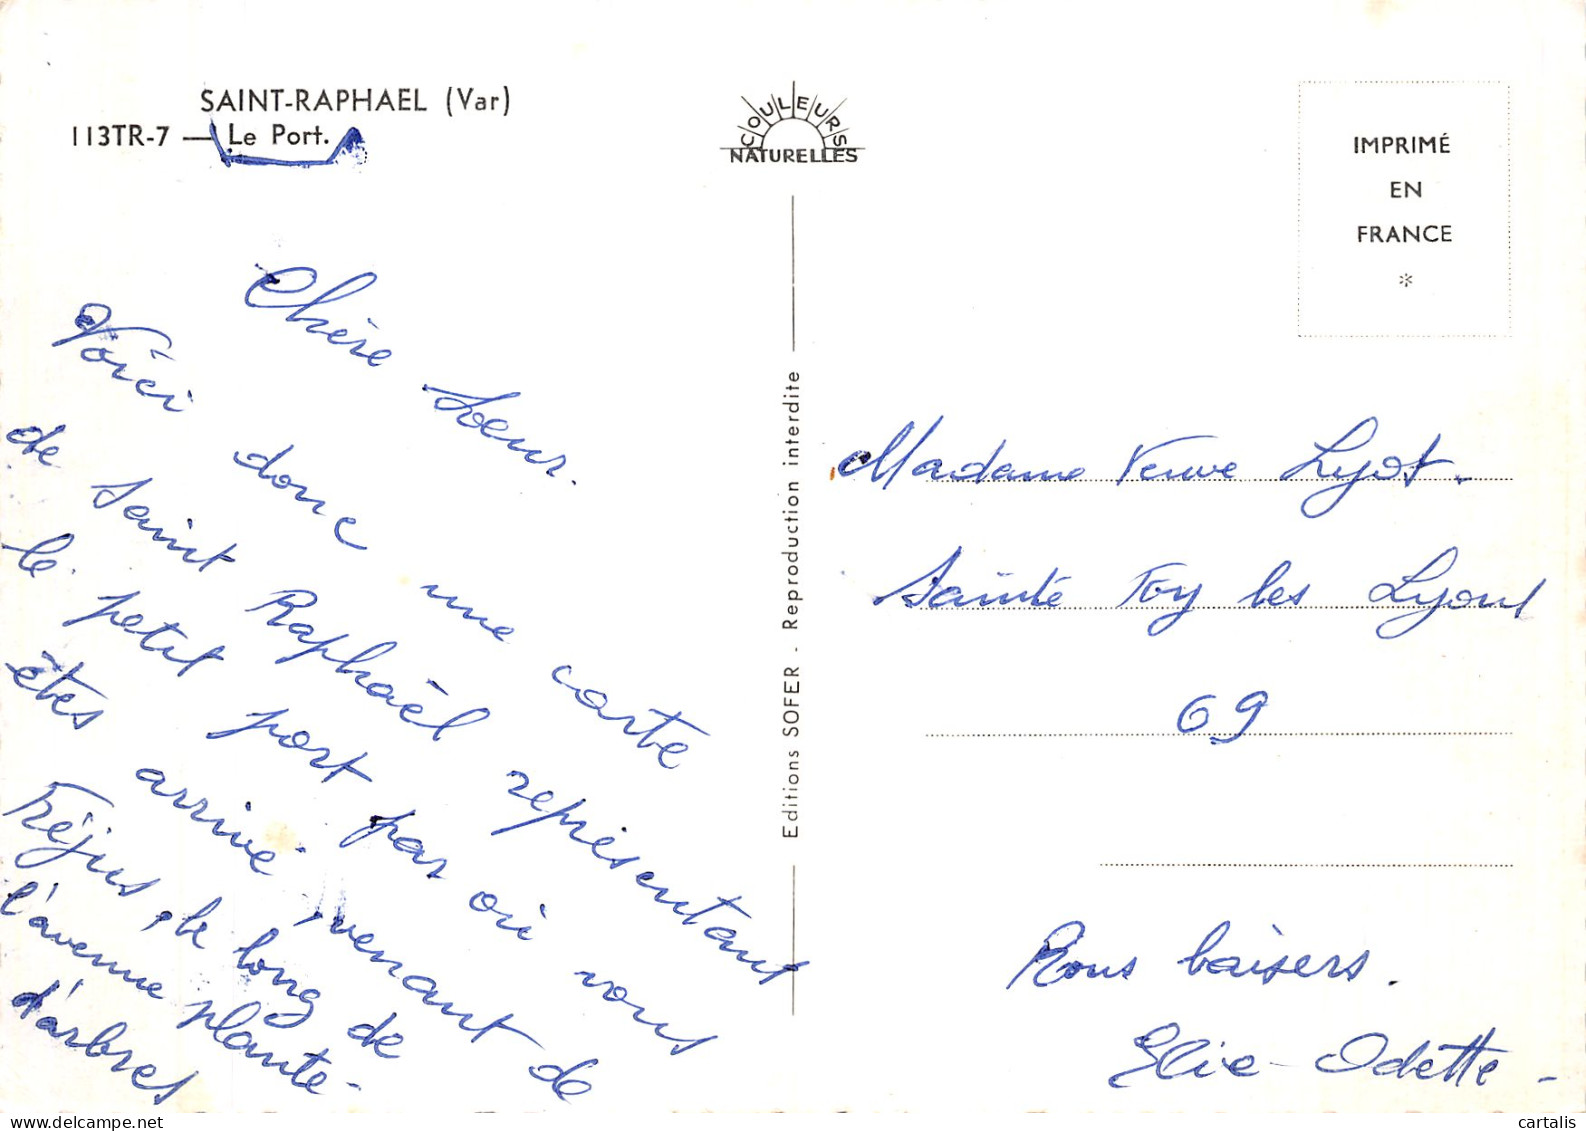 SAINT-RAPHAEL (Var)
113TR-7 — Le Port.
COULEURS
NATURELLES
IMPRIMÉ
EN
FRANCE
*
Chère Soeur.
Voici donc une carte
de Saint Raphaël représentant
le petit port par où vous
êtes arrivé, venant de
Fréjus, le long de
l'avenue plantée
d'arbres
Editions SOFER - Reproduction interdite
Madame Veuve Lyot.
Sainte Foy les Lyon
69
Bons baisers.
Elie - Odette -
cartalis